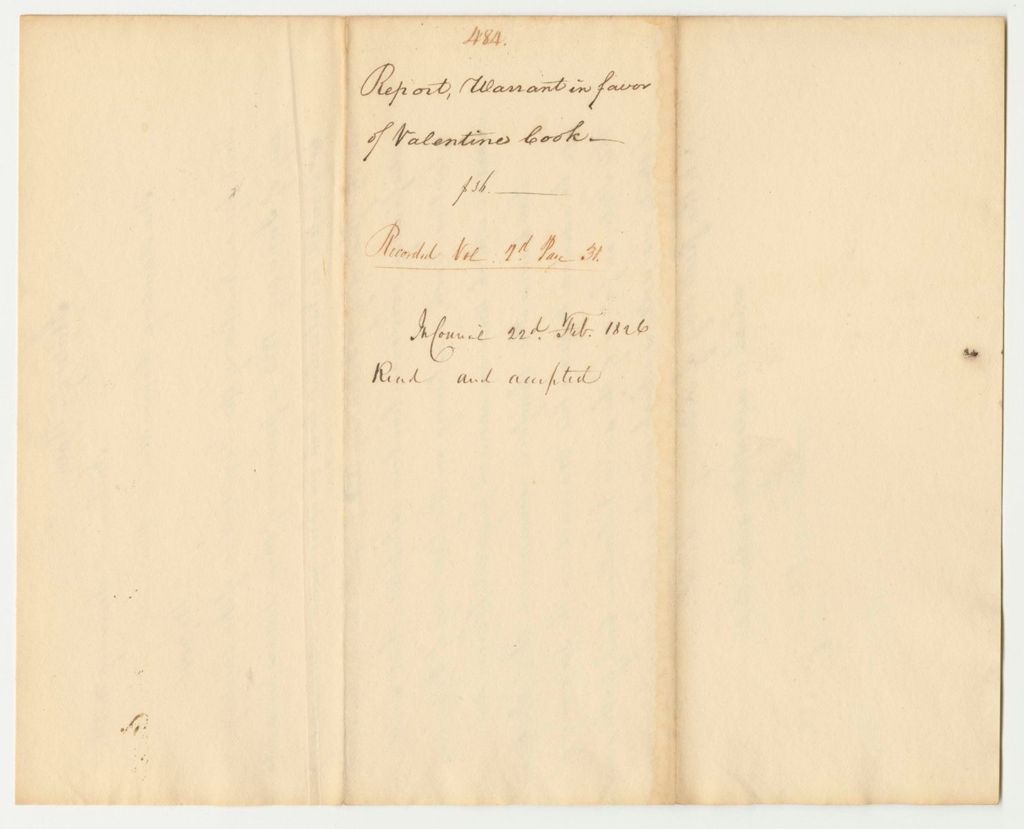 484.
Report, Warrant in favor
of Valentine Cook—
$36.
Recorded Vol. 2d. Page 31.
In Council 22d. Feb. 1826
Read and accepted